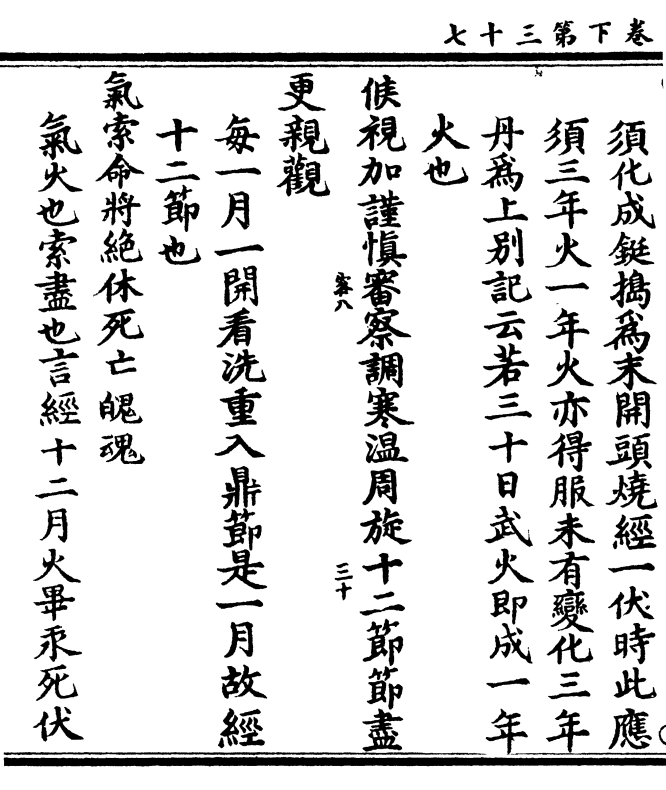 卷下第三十七
須化成鋌擣爲末開頭燒經一伏時此應
須三年火一年火亦得服未有變化三年
丹爲上別記云若三十日武火即成一年
火也
候視加謹慎審察調寒温周旋十二節節盡
容八
三十
更親觀
每一月一開看洗重入鼎節是一月故經
十二節也
氣索命將絶休死亡魄魂
氣火也索盡也言經十二月火畢汞死伏